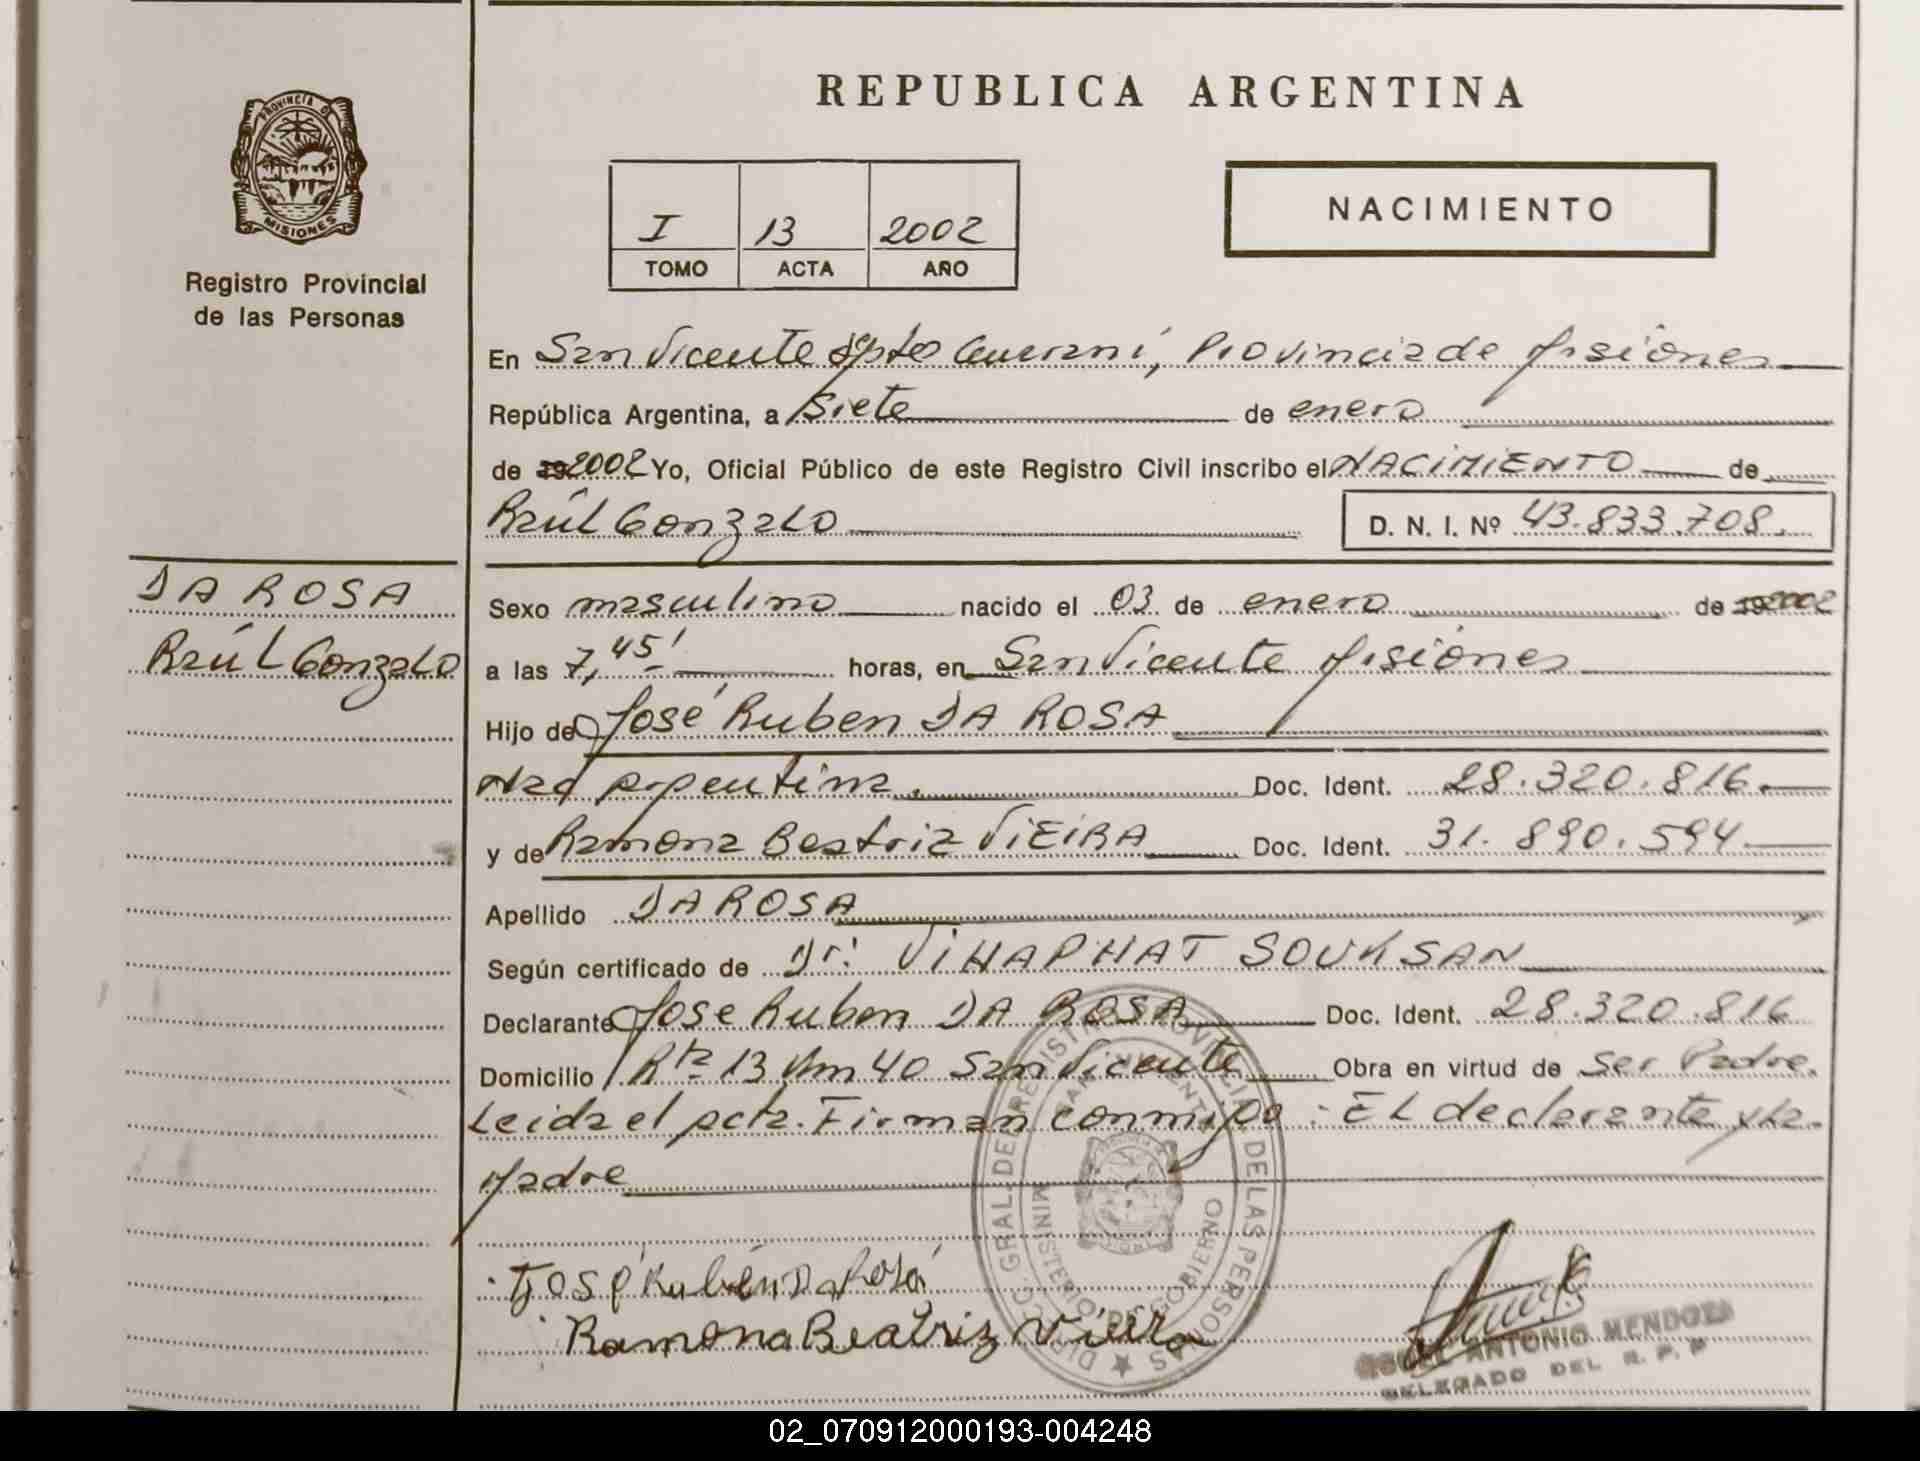 REPUBLICA ARGENTINA
PROVINCIA DE
MISIONES
Registro Provincial
de las Personas
I 13 2002
TOMO ACTA AÑO
NACIMIENTO
En San Vicente dpto Guaraní, Provincia de Misiones
República Argentina, a siete de enero
de 19 2002 Yo, Oficial Público de este Registro Civil inscribo el NACIMIENTO de
Raúl Gonzalo D. N. I. Nº 43.833.708.
DA ROSA
Raúl Gonzalo
Sexo masculino nacido el 03 de enero de 19 2002
a las 7,45' horas, en San Vicente Misiones
Hijo de José Ruben DA ROSA
Nac Argentina. Doc. Ident. 28.320.816.
y de Ramona Beatriz VIEIRA Doc. Ident. 31.890.594.
Apellido DA ROSA
Según certificado de Dr: VIHAPHAT SOUKSAN
Declarante Jose Ruben DA ROSA Doc. Ident. 28.320.816
Domicilio Rta 13 Km 40 San Vicente Obra en virtud de Ser Padre.
Leida el acta. Firman conmigo: El declarante y la
Madre
José Rubén Da Rosa
Ramona Beatriz Vieira
DIRECC. GRAL DE REGISTRO PROVINCIAL DE LAS PERSONAS
MINISTERIO DE GOBIERNO
SAN VICENTE
ANTONIO MENDOZA
DELEGADO DEL R. P. P
02_070912000193-004248